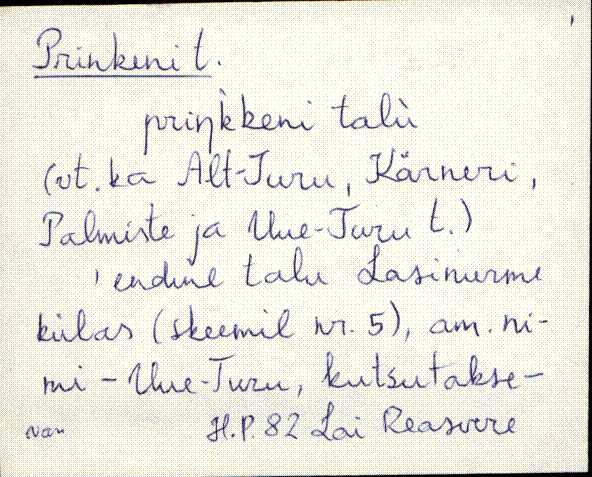 Prinkeni t.
priŋ̀kkeni talù
(vt. ka Alt-Turu, Kärneri,
Palmiste ja Uue-Turu t.)
' endine talu Lasinurme
külas (skeemil nr. 5), am. ni-
mi - Uue-Turu, kutsutakse-
H.P. 82 Lai Reasvere